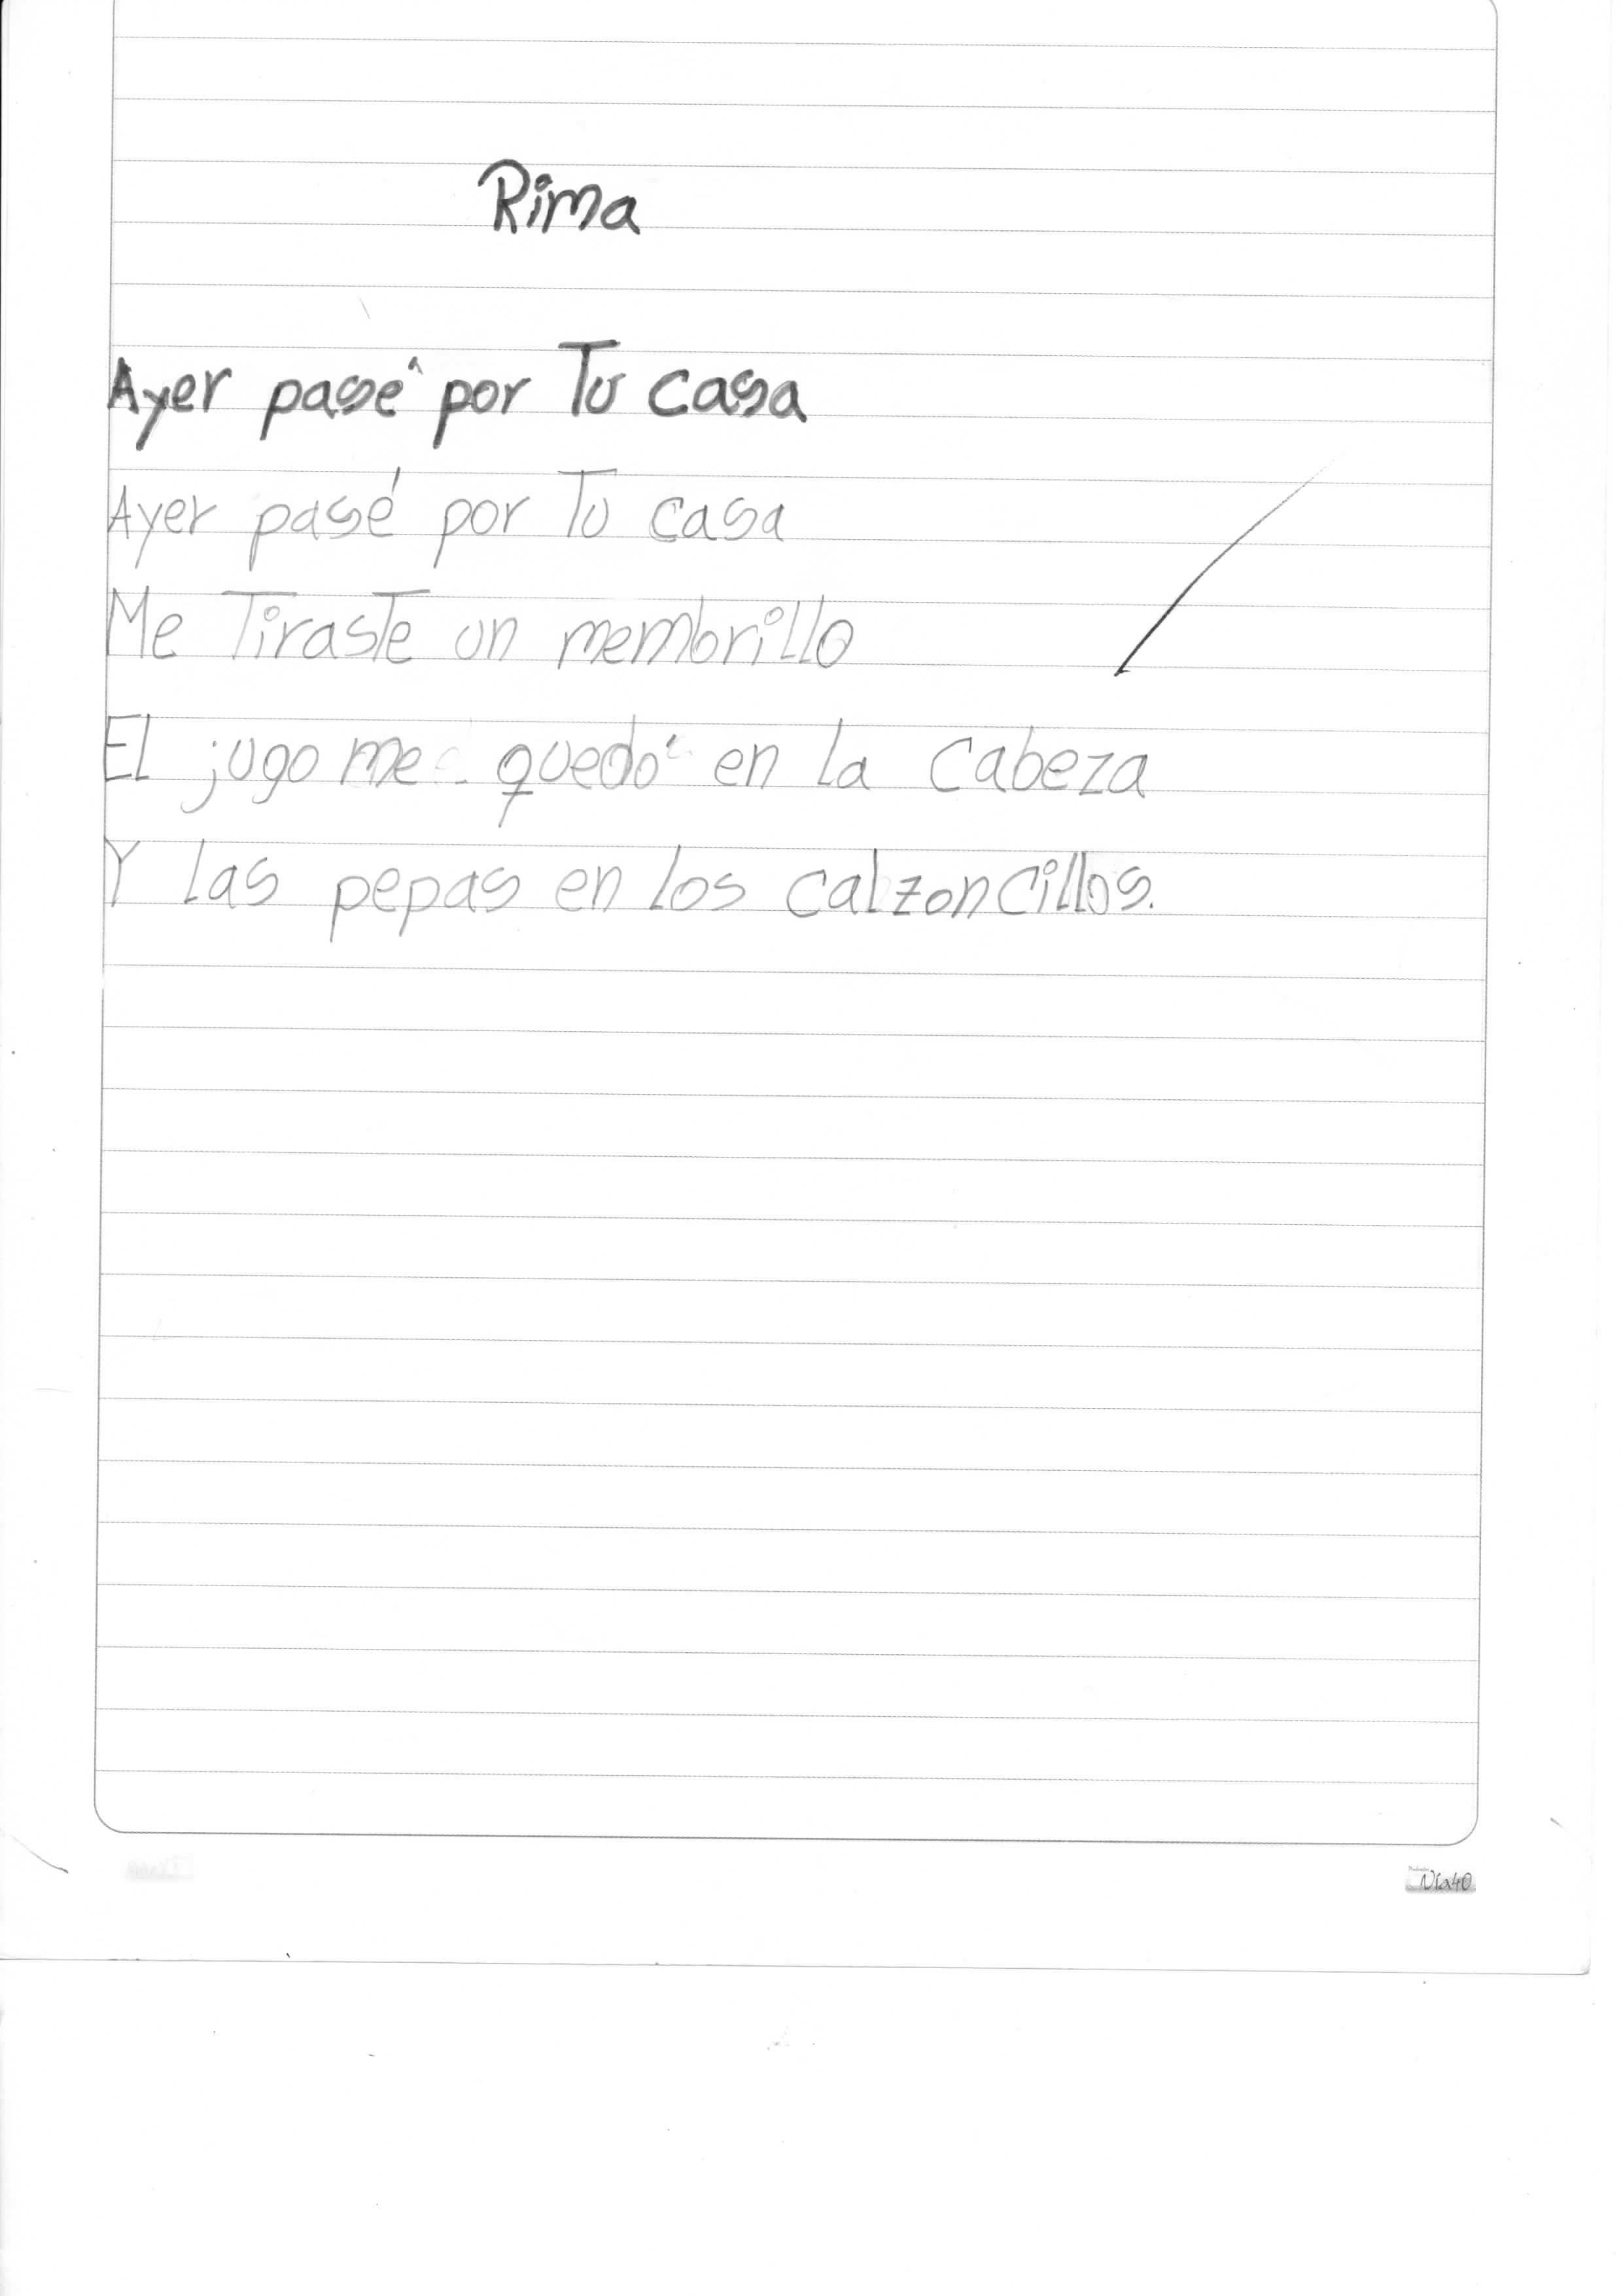 Rima
Ayer pasé por Tu casa
Ayer pasé por Tu casa
Me Tiraste un membrillo
El jugo me quedó en la cabeza
Y las pepas en los calzoncillos.